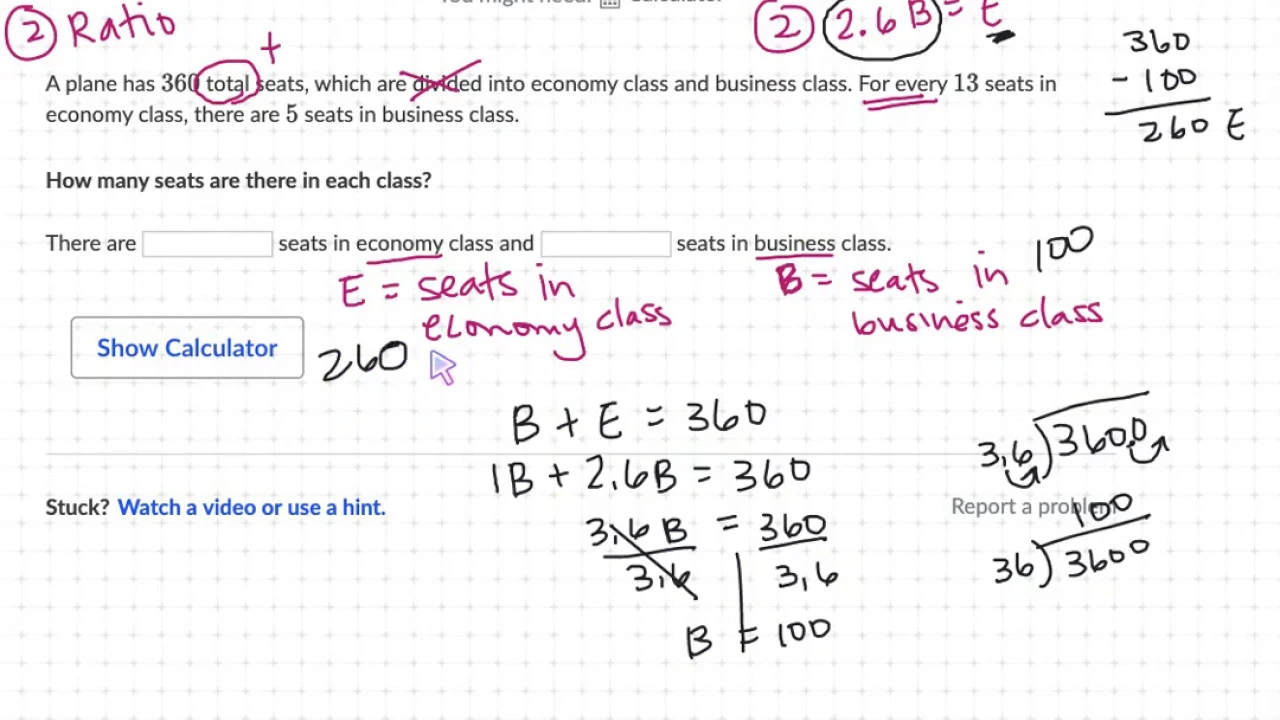 You might need: Calculator
② Ratio
② 2.6 B = E
+
360
- 100
260 E
A plane has 360 total seats, which are divided into economy class and business class. For every 13 seats in
economy class, there are 5 seats in business class.
How many seats are there in each class?
There are seats in economy class and seats in business class.
100
E = seats in
economy class
B = seats in
business class
Show Calculator
260
B + E = 360
1B + 2.6B = 360
3.6 B = 360
3.6 3.6
B = 100
3.6 360.0
100
36 3600
Stuck? Watch a video or use a hint.
Report a problem